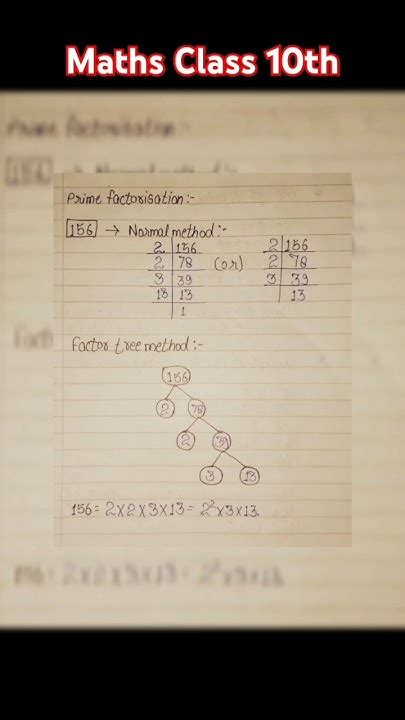 Maths Class 10th
Prime factorisation:-
156 → Normal method:-
2 | 156 (or) 2 | 156
2 | 78 2 | 78
3 | 39 3 | 39
13 | 13 13
1
factor tree method:-
156
2 78
2 39
3 13
156 = 2×2×3×13 = 2²×3×13